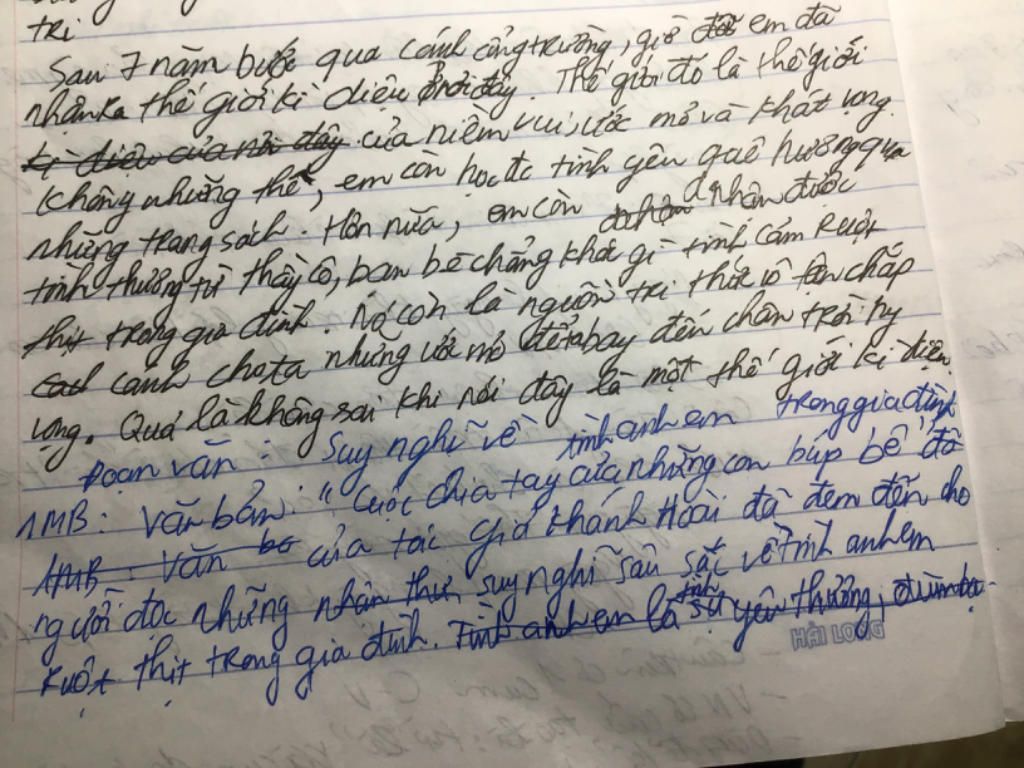 tri
Sau 7 năm bước qua cánh cổng trường, giờ em đã
nhận ra thế giới kì diệu ở nơi đây. Thế giới đó là thế giới
kì diệu của nơi đây của niềm vui, ước mơ và khát vọng.
Không những thế, em còn học đc tình yêu quê hương qua
những trang sách. Hơn nữa, em còn nhận được
tình thương từ thầy cô, bạn bè chẳng khác gì tình cảm ruột
thịt trong gia đình. Nó còn là nguồn tri thức vô tận chắp
cánh cho ta những ước mơ để ta bay đến chân trời hy
vọng. Quả là không sai khi nói đây là một thế giới kì diệu
Đoạn văn: Suy nghĩ về tình anh em trong gia đình
1MB: Văn bản "Cuộc chia tay của những con búp bê" đã
1MB: Văn bả của tác giả Khánh Hoài đã đem đến cho
người đọc những nhận thức suy nghĩ sâu sắc về tình anh em
ruột thịt trong gia đình. Tình anh em là tình sự yêu thương, đùm bọ
HẢI LONG